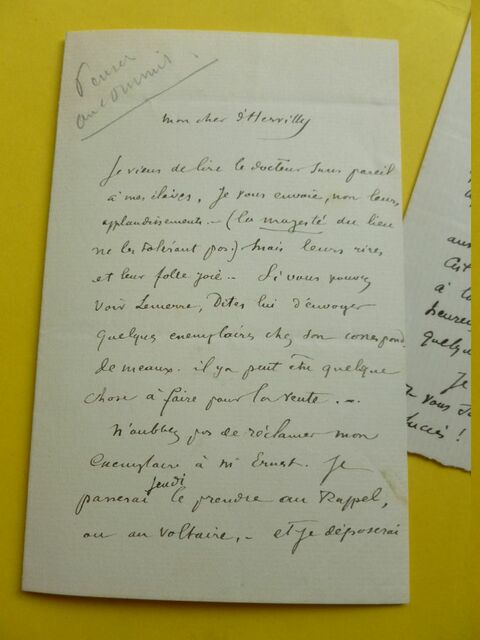 Penser
au commis
mon cher d'Hervilly
Je viens de lire le docteur Sans pareil
à mes élèves, Je vous envoie, non leurs
applaudissements — (la majesté du lieu
ne les tolérant pas.) Mais leurs rires
et leur folle joie — Si vous pouvez
voir Lemerre, Dites lui d'envoyer
quelques exemplaires chez son correspond
de meaux. il y a peut être quelque
chose à faire pour la vente. —
N'oubliez pas de réclamer mon
exemplaire à M Ernest. Je
passerai jeudi le prendre au Rappel,
ou au Voltaire, — et je déposerai
aus
à la
heureu
quelqu
Je
vous
succès !